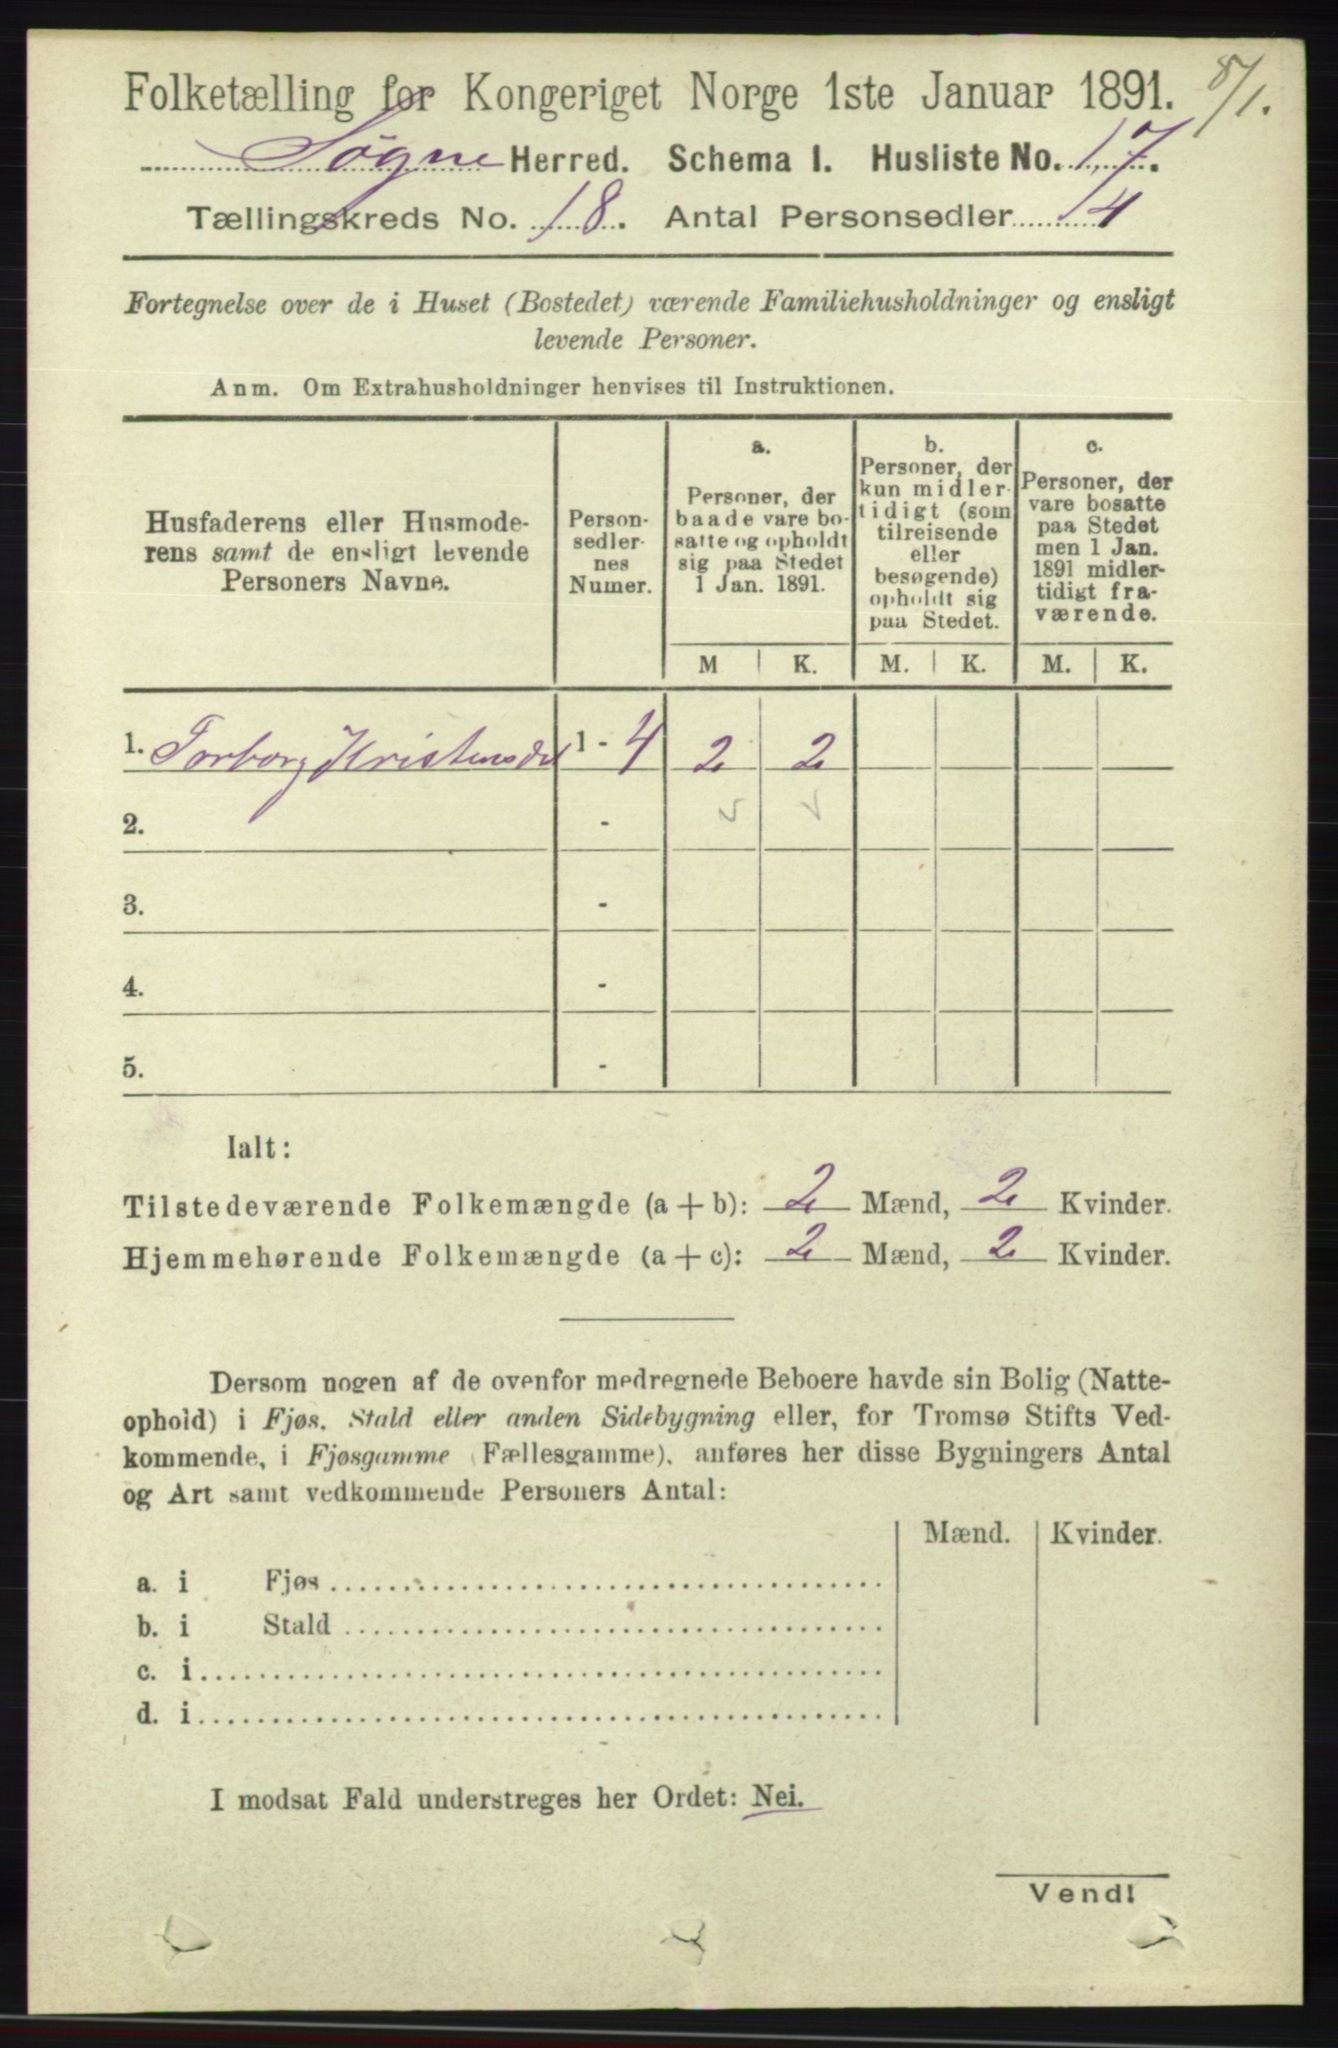 Folketælling for Kongeriget Norge 1ste Januar 1891.
8/1.
Søgne Herred. Schema I. Husliste No. 17.
Tællingskreds No. 18. Antal Personsedler 4
Fortegnelse over de i Huset (Bostedet) værende Familiehusholdninger og ensligt
levende Personer.
Anm. Om Extrahusholdninger henvises til Instruktionen.
Husfaderens eller Husmode-
rens samt de ensligt levende
Personers Navne.
Person-
sedler-
nes
Numer.
a.
Personer, der
baade vare bo-
satte og opholdt
sig paa Stedet
1 Jan. 1891.
b.
Personer, der
kun midler-
tidigt (som
tilreisende
eller
besøgende)
opholdt sig
paa Stedet.
c.
Personer, der
vare bosatte
paa Stedet
men 1 Jan.
1891 midler-
tidigt fra-
værende.
M K. M. K. M. K.
1. Torborg Kristensdtt 1 - 4 2 2
2. -
3. -
4. -
5. -
Ialt:
Tilstedeværende Folkemængde (a + b): 2 Mænd, 2 Kvinder.
Hjemmehørende Folkemængde (a + c): 2 Mænd, 2 Kvinder.
Dersom nogen af de ovenfor medregnede Beboere havde sin Bolig (Natte-
ophold) i Fjøs, Stald eller anden Sidebygning eller, for Tromsø Stifts Ved-
kommende, i Fjøsgamme (Fællesgamme), anføres her disse Bygningers Antal
og Art samt vedkommende Personers Antal:
Mænd. Kvinder.
a. i Fjøs
b. i Stald
c. i
d. i
I modsat Fald understreges her Ordet: Nei.
Vend!